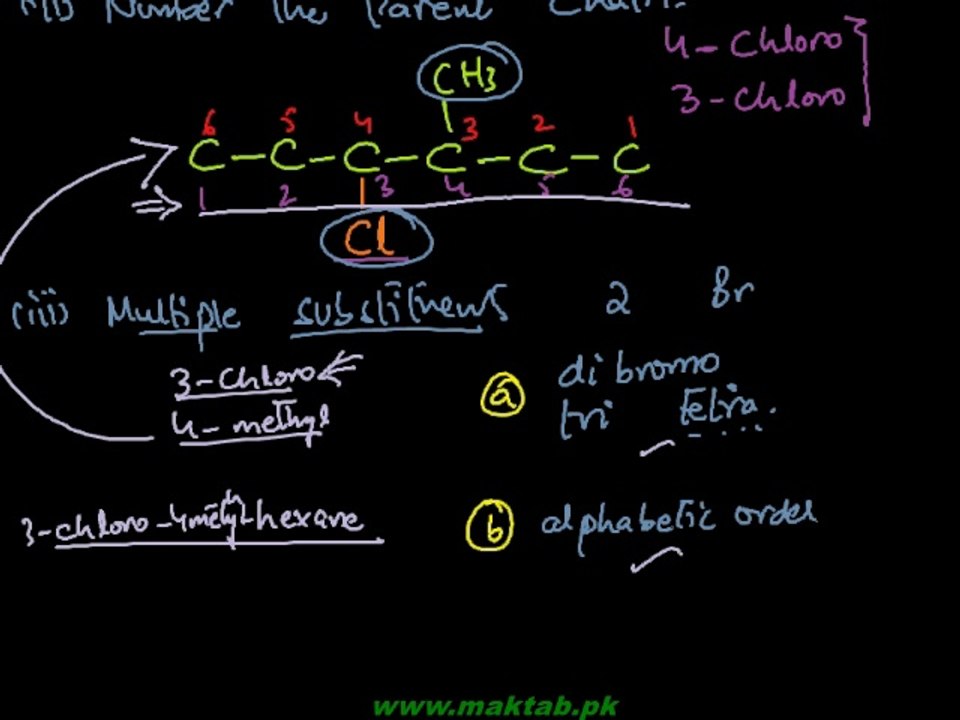 (ii) Number the Parent Chain.
4- Chloro
3- Chloro
CH3
6 5 4 3 2 1
C - C - C - C - C - C
1 2 3 4 5 6
Cl
(iii) Multiple substituents 2 Br
3-Chloro
4- methyl
a dibromo
tri tetra.
3-chloro-4methyl-hexane
b alphabetic order
www.maktab.pk